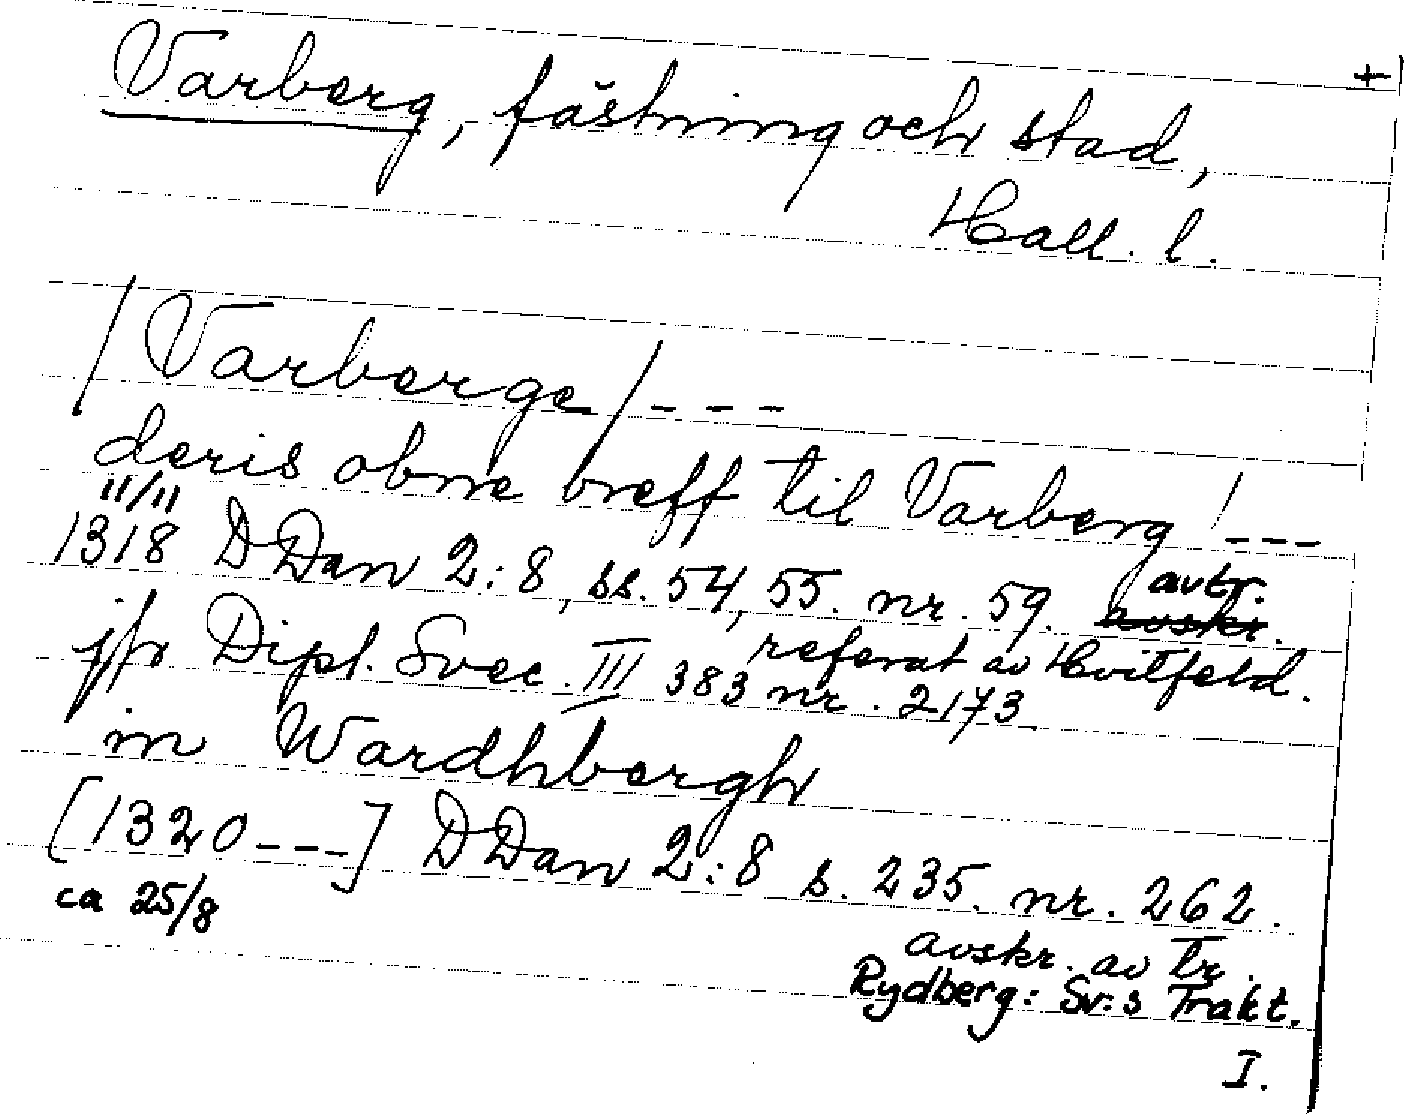 +
Varberg, fästning och stad,
Hall. l.
/Varberge/ - - -
deris obne breff til Varberg ! - - -
11/11
1318 DDan 2:8, ss. 54, 55. nr. 59. avskr. avtr.
referat av Hvitfeld.
jfr Dipl. Svec. III 383 nr. 2173
in Wardhbergh
[1320 - - -] DDan 2:8 s. 235. nr. 262.
ca 25/8
avskr. av tr.
Rydberg: Sv:s Trakt.
I.